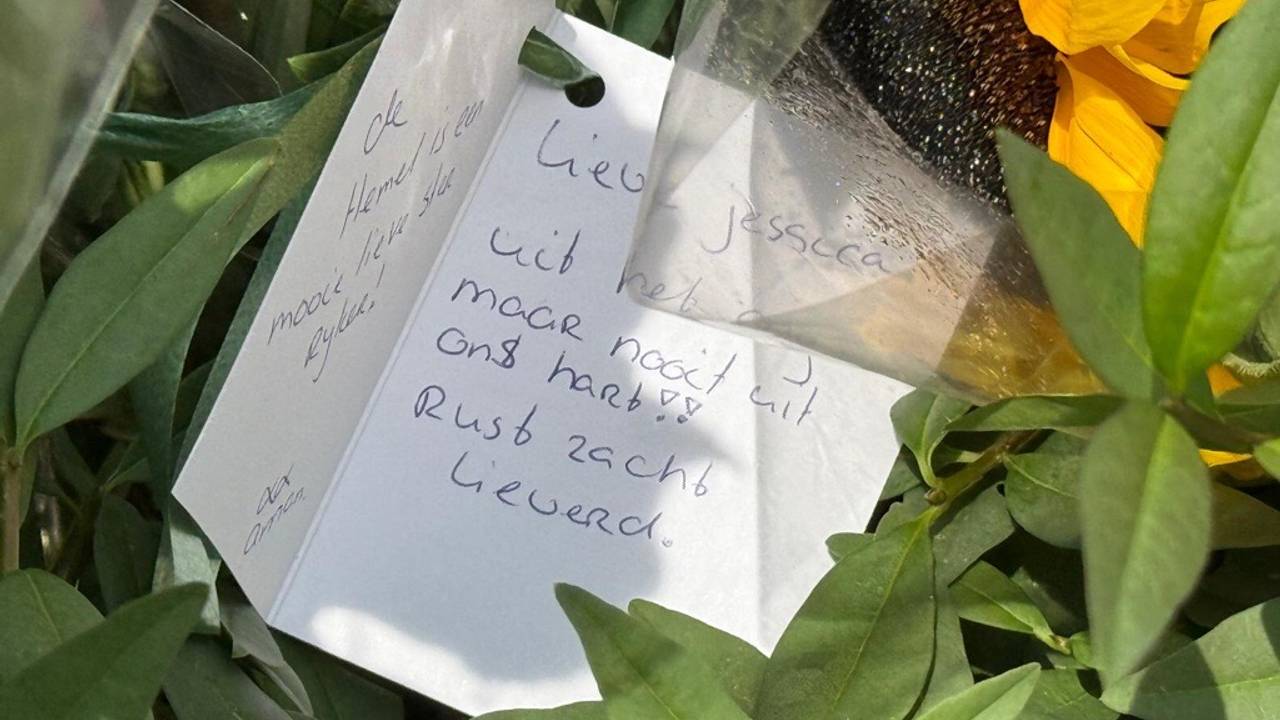 de
Hemel is een
mooie lieve ster
Ryker!
xx
arman.
Lieve Jessica
uit het
maar nooit uit
ons hart!!
Rust zacht
Lieverd.